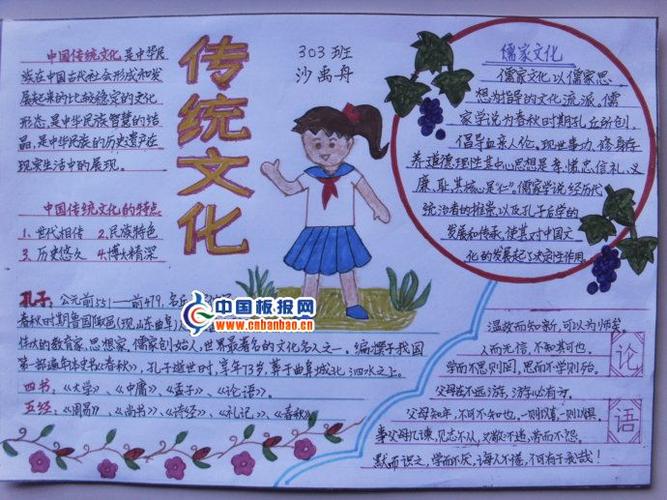 传统文化
303班
沙禹舟
中国传统文化是中华民
族在中国古代社会形成和发
展起来的比较稳定的文化
形态,是中华民族智慧的结
晶,是中华民族的历史遗产在
现实生活中的展现。
中国传统文化的特点
1、世代相传 2、民族特色
3、历史悠久 4、博大精深
孔子:公元前551—前479,名
春秋时期鲁国陬邑(现山东曲阜)
伟大的教育家、思想家,儒家创始人,世界最著名的文化名人之一。编撰了我国
第一部编年体史书《春秋》,孔子逝世时,享年73岁,葬于曲阜城北泗水之上。
四书:《大学》、《中庸》、《孟子》、《论语》。
五经:《周易》、《尚书》、《诗经》、《礼记》、《春秋》
中国板报网
www.cnbanbao.cn
儒家文化
儒家文化以儒家思
想为指导的文化流派。儒
家学说为春秋时期孔丘所创,
倡导血亲人伦、现世事功、修身存
养、道德理性,其中心思想是孝、悌、忠、信、礼、义、
廉、耻,其核心是“仁”。儒家学说经历代
统治者的推崇,以及孔子后学的
发展和传承,使其对中国文
化的发展起了决定性作用。
论语
温故而知新,可以为师矣。
人而无信,不知其可也。
学而不思则罔,思而不学则殆。
父母在不远游,游必有方。
父母之年,不可不知也,一则以喜,一则以惧。
事父母几谏,见志不从,又敬不违,劳而不怨。
默而识之,学而不厌,诲人不倦,何有于我哉!